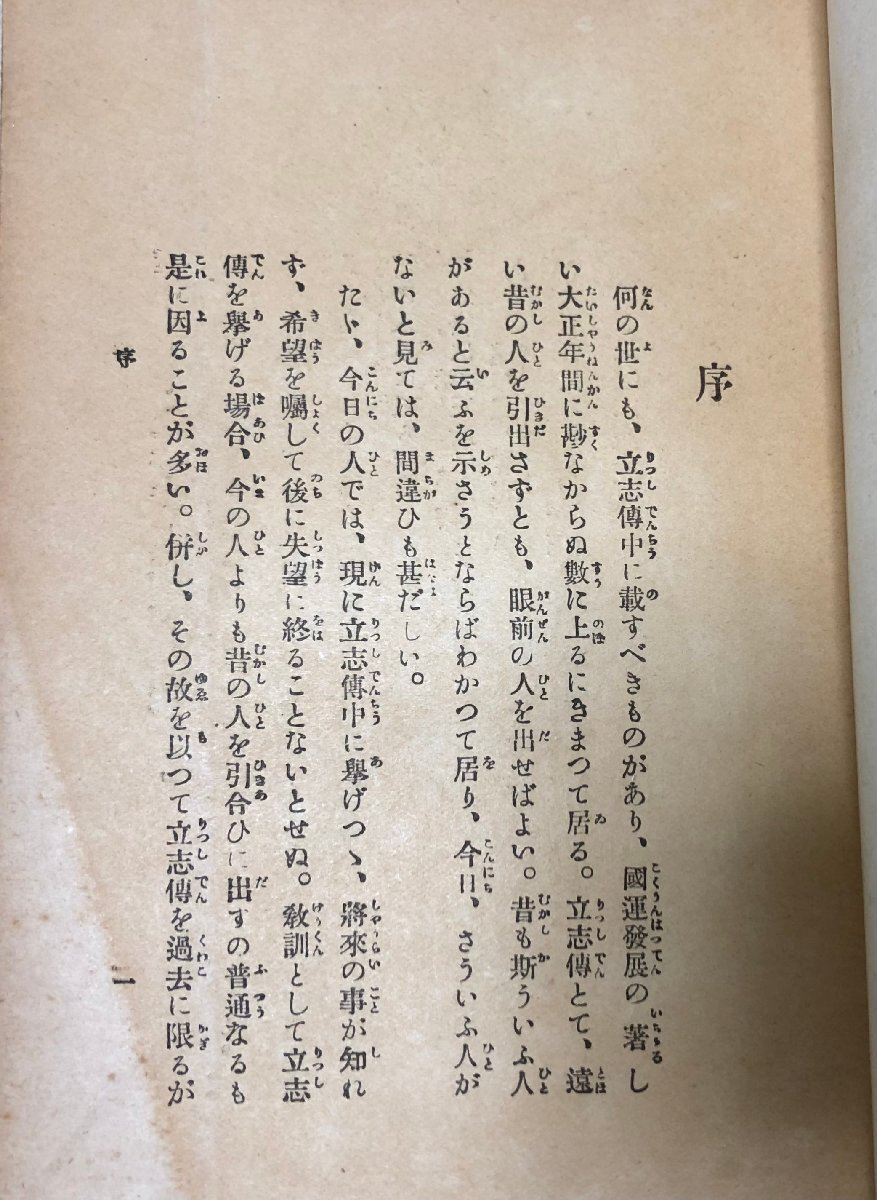 序
何の世にも、立志傳中に載すべきものがあり、國運發展の著し
い大正年間に尠なからぬ數に上るにきまつて居る。立志傳とて、遠
い昔の人を引出さずとも、眼前の人を出せばよい。昔も斯ういふ人
があると云ふを示さうとならばわかつて居り、今日、さういふ人が
ないと見ては、間違ひも甚だしい。
たゞ、今日の人では、現に立志傳中に擧げつゝ、將來の事が知れ
ず、希望を囑して後に失望に終ることないとせぬ。敎訓として立志
傳を擧げる場合、今の人よりも昔の人を引合ひに出すの普通なるも
是に因ることが多い。併し、その故を以つて立志傳を過去に限るが
序
一